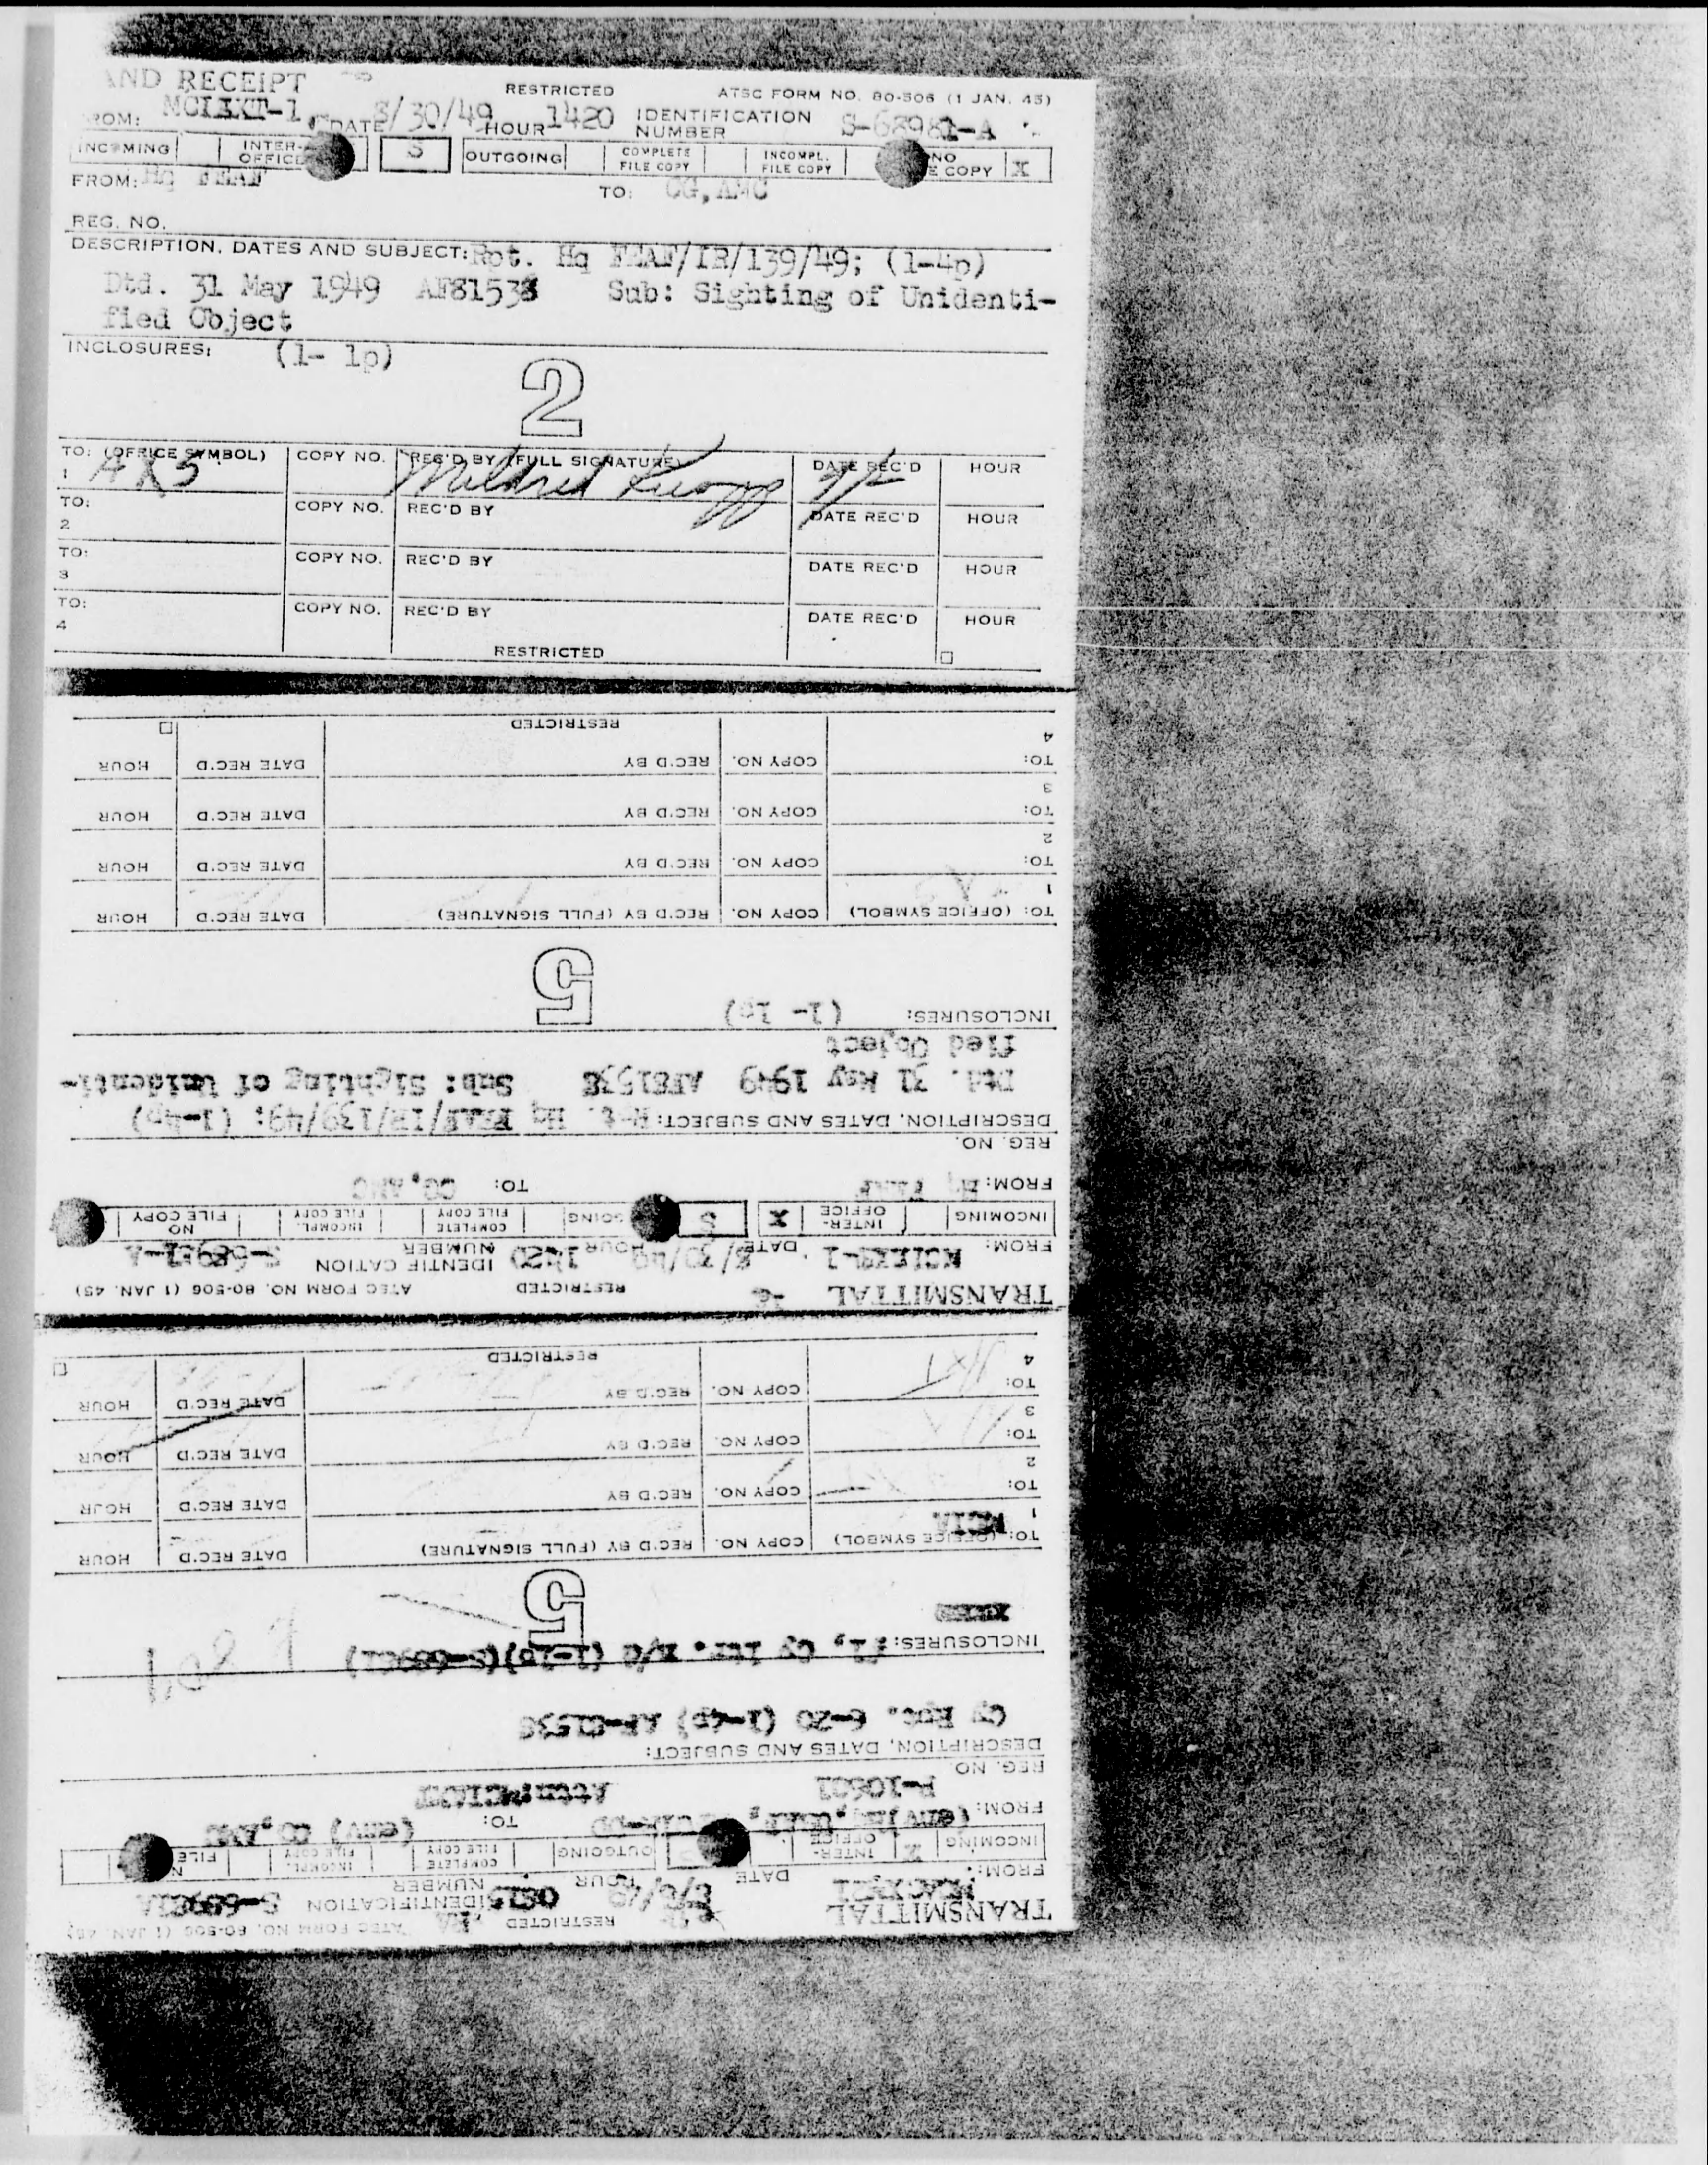 AND RECEIPT
RESTRICTED ATSC FORM NO. 80-506 (1 JAN. 45)
FROM: MCIAXT-1, DATE 8/30/49 HOUR 1420 IDENTIFICATION NUMBER S-68981-A
INCOMING INTER-OFFICE S OUTGOING COMPLETE FILE COPY INCOMPL. FILE COPY NO FILE COPY X
FROM: Hq FEAF TO: CG, AMC
REG. NO.
DESCRIPTION, DATES AND SUBJECT: Rpt. Hq FEAF/IR/139/49; (1-4p)
Dtd. 31 May 1949 AF81538 Sub: Sighting of Unidenti-
fied Object
INCLOSURES: (1- 1p)
2
TO: (OFFICE SYMBOL) COPY NO. REC'D BY (FULL SIGNATURE) DATE REC'D HOUR
1 AXS Mildred
TO: COPY NO. REC'D BY DATE REC'D HOUR
2
TO: COPY NO. REC'D BY DATE REC'D HOUR
3
TO: COPY NO. REC'D BY DATE REC'D HOUR
4
RESTRICTED
TRANSMITTAL RESTRICTED ATSC FORM NO. 80-506 (1 JAN. 45)
FROM: DATE 8/30/49 HOUR 1420 IDENTIFICATION NUMBER S-68981-A
INCOMING INTER-OFFICE X S GOING COMPLETE FILE COPY INCOMPL. FILE COPY NO FILE COPY
FROM: Hq FEAF TO: CG, AMC
REG. NO.
DESCRIPTION, DATES AND SUBJECT: Rpt. Hq FEAF/IR/139/49; (1-4p)
Dtd. 31 May 1949 AF81538 Sub: Sighting of Unidenti-
fied Object
INCLOSURES: (1- 1p)
5
TO: (OFFICE SYMBOL) COPY NO. REC'D BY (FULL SIGNATURE) DATE REC'D HOUR
1
TO: COPY NO. REC'D BY DATE REC'D HOUR
2
TO: COPY NO. REC'D BY DATE REC'D HOUR
3
TO: COPY NO. REC'D BY DATE REC'D HOUR
4
RESTRICTED
TRANSMITTAL RESTRICTED ATSC FORM NO. 80-506 (1 JAN. 45)
FROM: DATE HOUR IDENTIFICATION NUMBER
INCOMING X INTER-OFFICE OUTGOING COMPLETE FILE COPY INCOMPL. FILE COPY FILE
FROM: (env) TO: (env) CG, AMC
REG. NO.
DESCRIPTION, DATES AND SUBJECT:
Cy Rpt. 6-20 (1-4p) AF-81538
INCLOSURES: #1, Cy ltr. (1-1p)
5
TO: (OFFICE SYMBOL) COPY NO. REC'D BY (FULL SIGNATURE) DATE REC'D HOUR
1 MCIA
TO: COPY NO. REC'D BY DATE REC'D HOUR
2
TO: COPY NO. REC'D BY DATE REC'D HOUR
3
TO: COPY NO. REC'D BY DATE REC'D HOUR
4
RESTRICTED